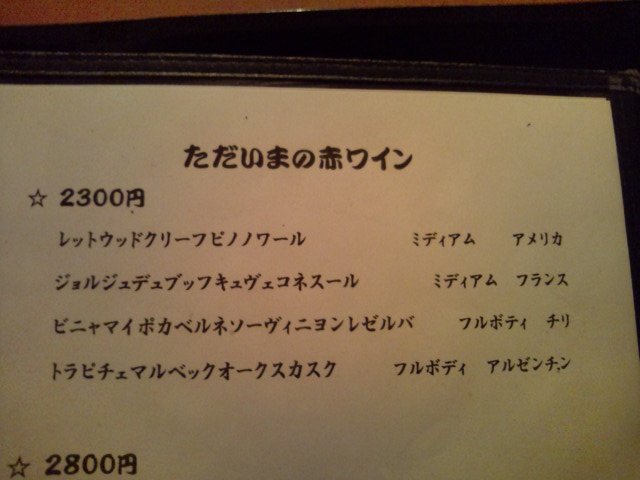 ただいまの赤ワイン
☆ 2300円
レットウッドクリーフピノノワール ミディアム アメリカ
ジョルジュデュブッフキュヴェコネスール ミディアム フランス
ビニャマイポカベルネソーヴィニヨンレゼルバ フルボティ チリ
トラピチェマルベックオークスカスク フルボディ アルゼンチン
☆ 2800円